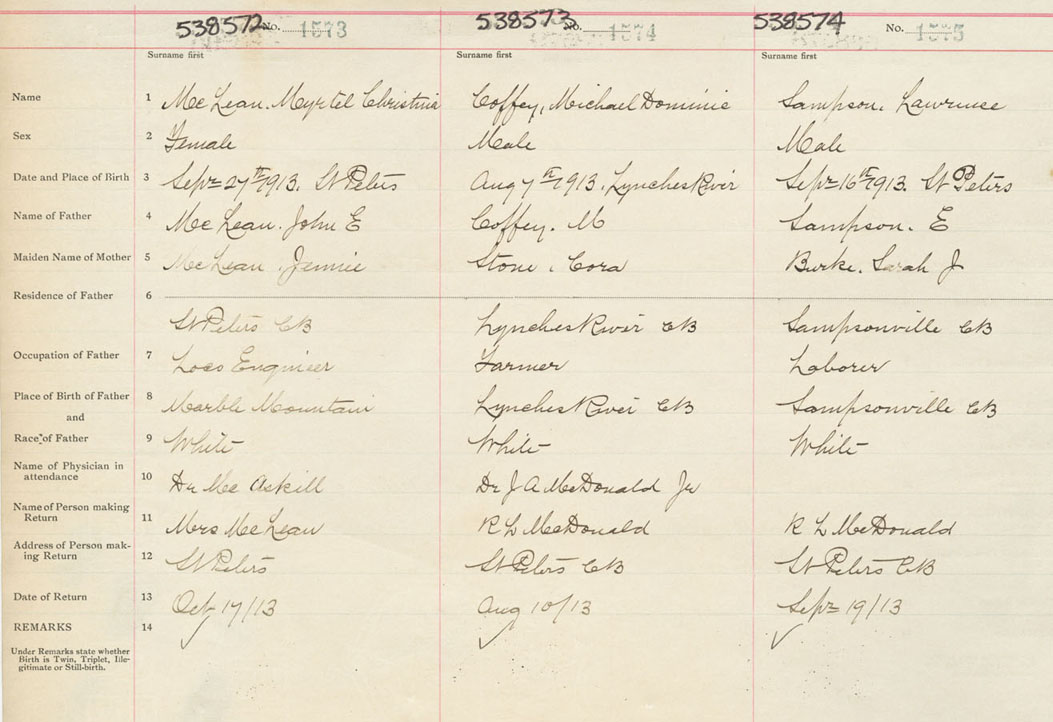 538572 No. 1573 538573 No. 1574 538574 No. 1575
Surname first Surname first Surname first
Name 1 McLean. Myrtel Christina Coffey, Michael Dominic Sampson. Lawrence
Sex 2 Female Male Male
Date and Place of Birth 3 Sept 27th 1913. St Peters Aug 7th 1913. Lynches River Sept 16th 1913. St Peters
Name of Father 4 McLean. John E Coffey. M Sampson. E
Maiden Name of Mother 5 McLean. Jennie Stone. Cora Burke. Sarah J
Residence of Father 6
St Peters CB Lynches River CB Sampsonville CB
Occupation of Father 7 Loco Engineer Farmer Laborer
Place of Birth of Father 8 Marble Mountain Lynches River CB Sampsonville CB
and
Race of Father 9 White White White
Name of Physician in
attendance 10 Dr McAskill Dr J A McDonald Jr
Name of Person making
Return 11 Mrs McLean R L McDonald R L McDonald
Address of Person mak-
ing Return 12 St Peters St Peters CB St Peters CB
Date of Return 13 Oct 17/13 Aug 10/13 Sept 19/13
REMARKS 14
Under Remarks state whether
Birth is Twin, Triplet, Ille-
gitimate or Still-birth.